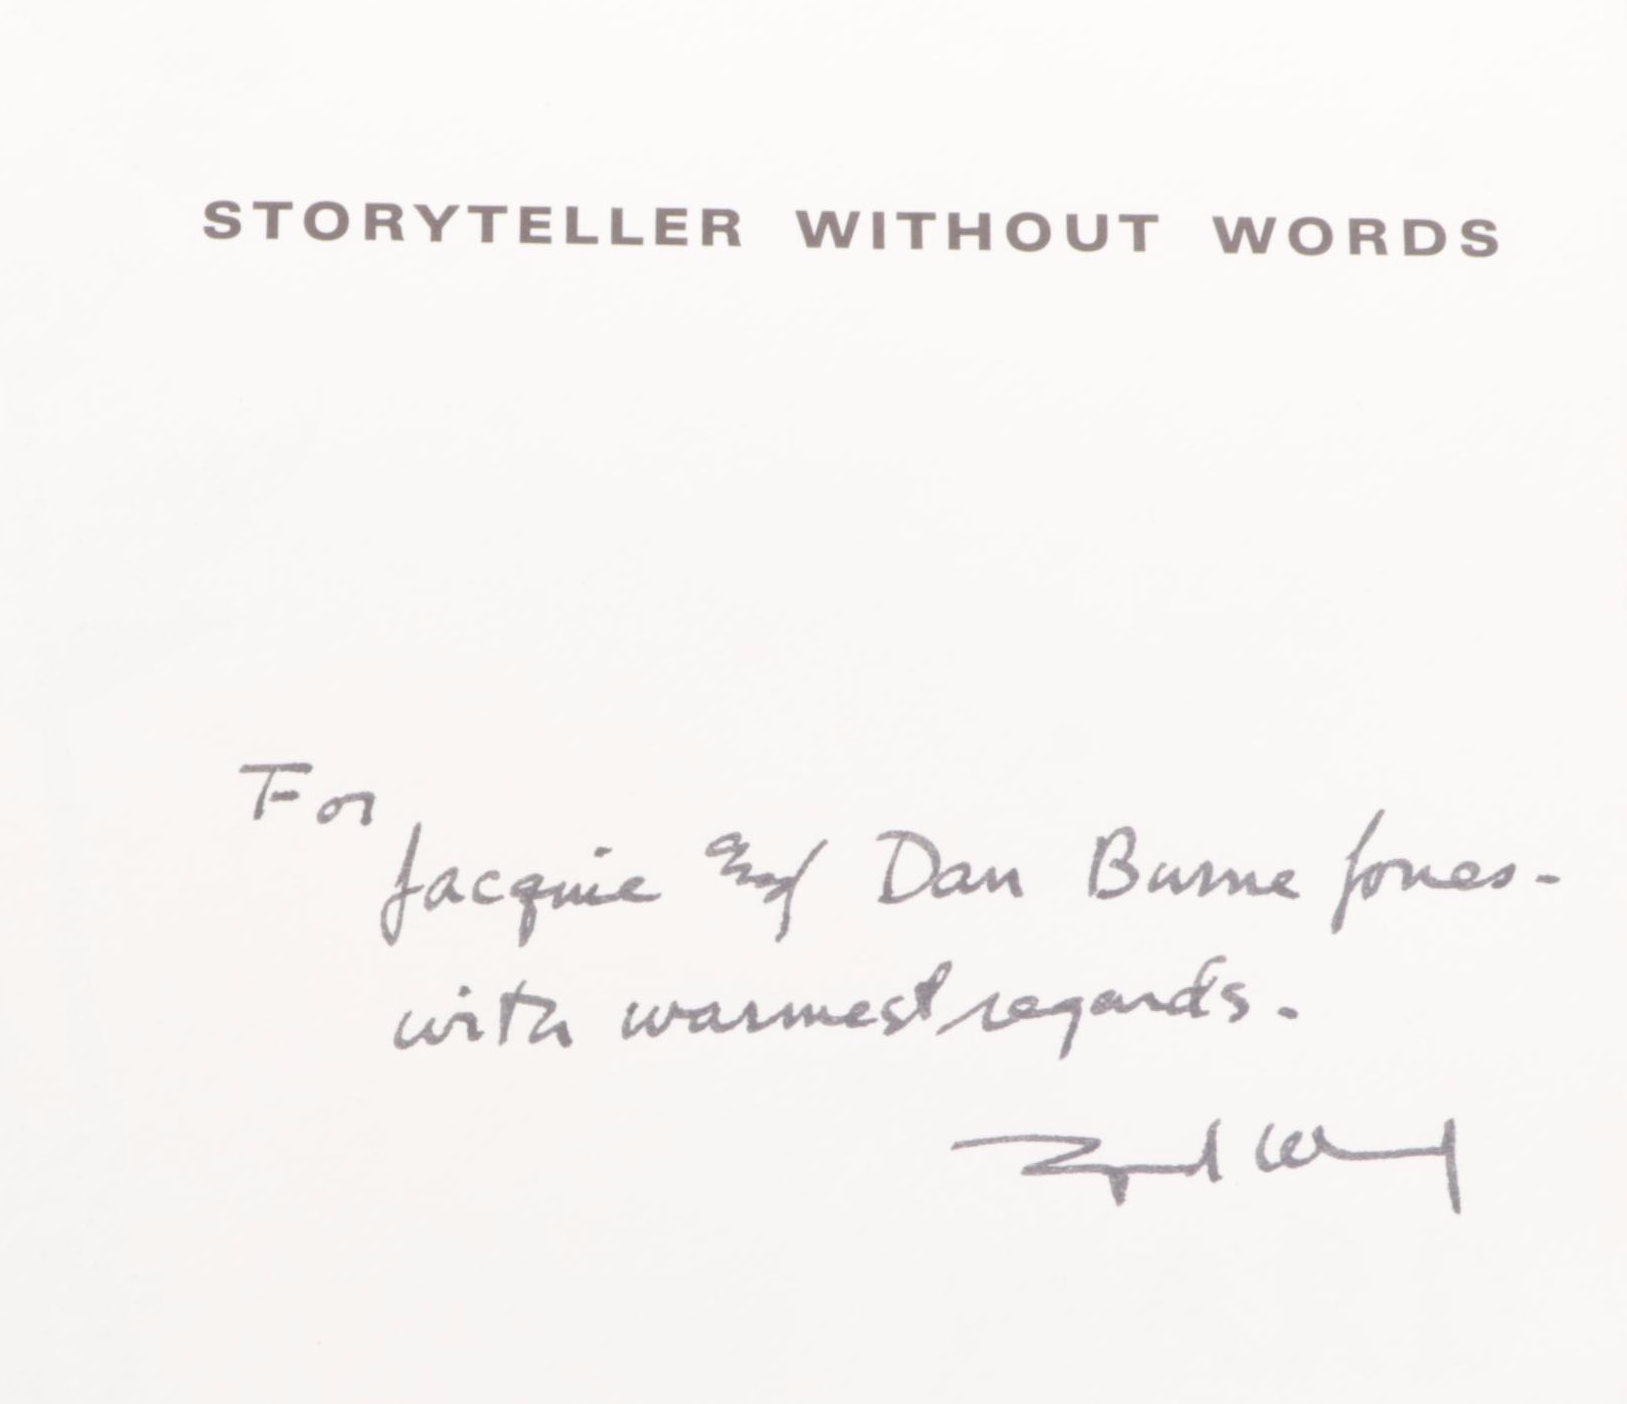 STORYTELLER WITHOUT WORDS
For
Jacquie and Dan Burne Jones -
with warmest regards.
Lynd Ward